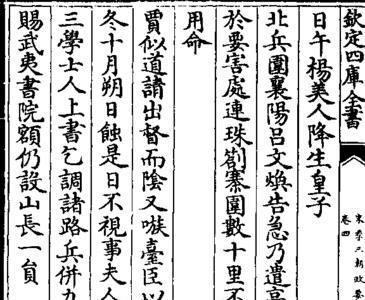 欽定四庫全書
宋季三朝政要
卷四
日午楊美人降生皇子
北兵圍襄陽呂文煥告急乃遣高
於要害處連珠劄寨圍數十里不
用命
賈似道請出督而陰又嗾臺臣以
冬十月朔日蝕是日不視事夫人
三學士人上書乞調諸路兵併力
賜武夷書院額仍設山長一員